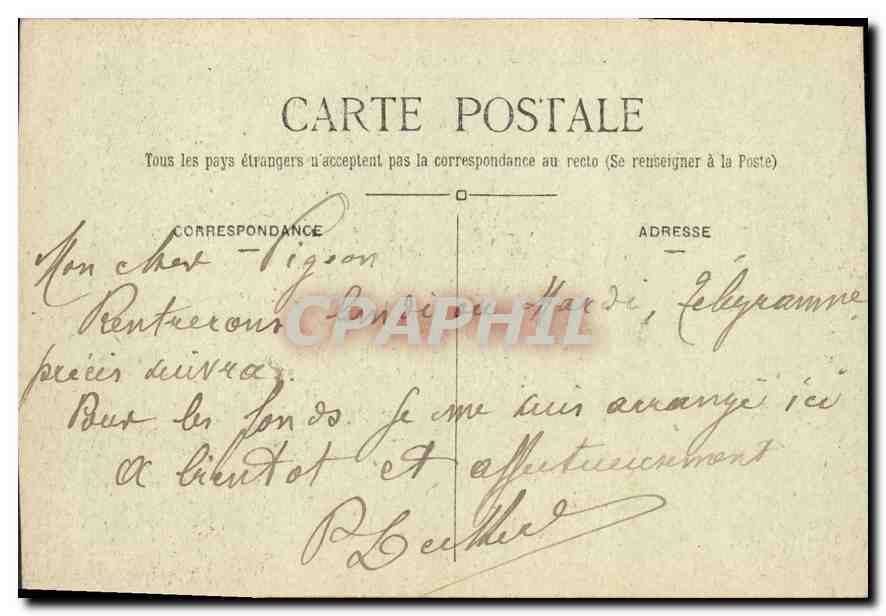 CARTE POSTALE
Tous les pays étrangers n'acceptent pas la correspondance au recto (Se renseigner à la Poste)
CORRESPONDANCE
ADRESSE
Mon cher Pigeon
Rentrerons lundi ou Mardi, télégramme
précis suivra.
Pour les fonds je me suis arrangé ici
A bientot et affectueusement
CPAPHIL